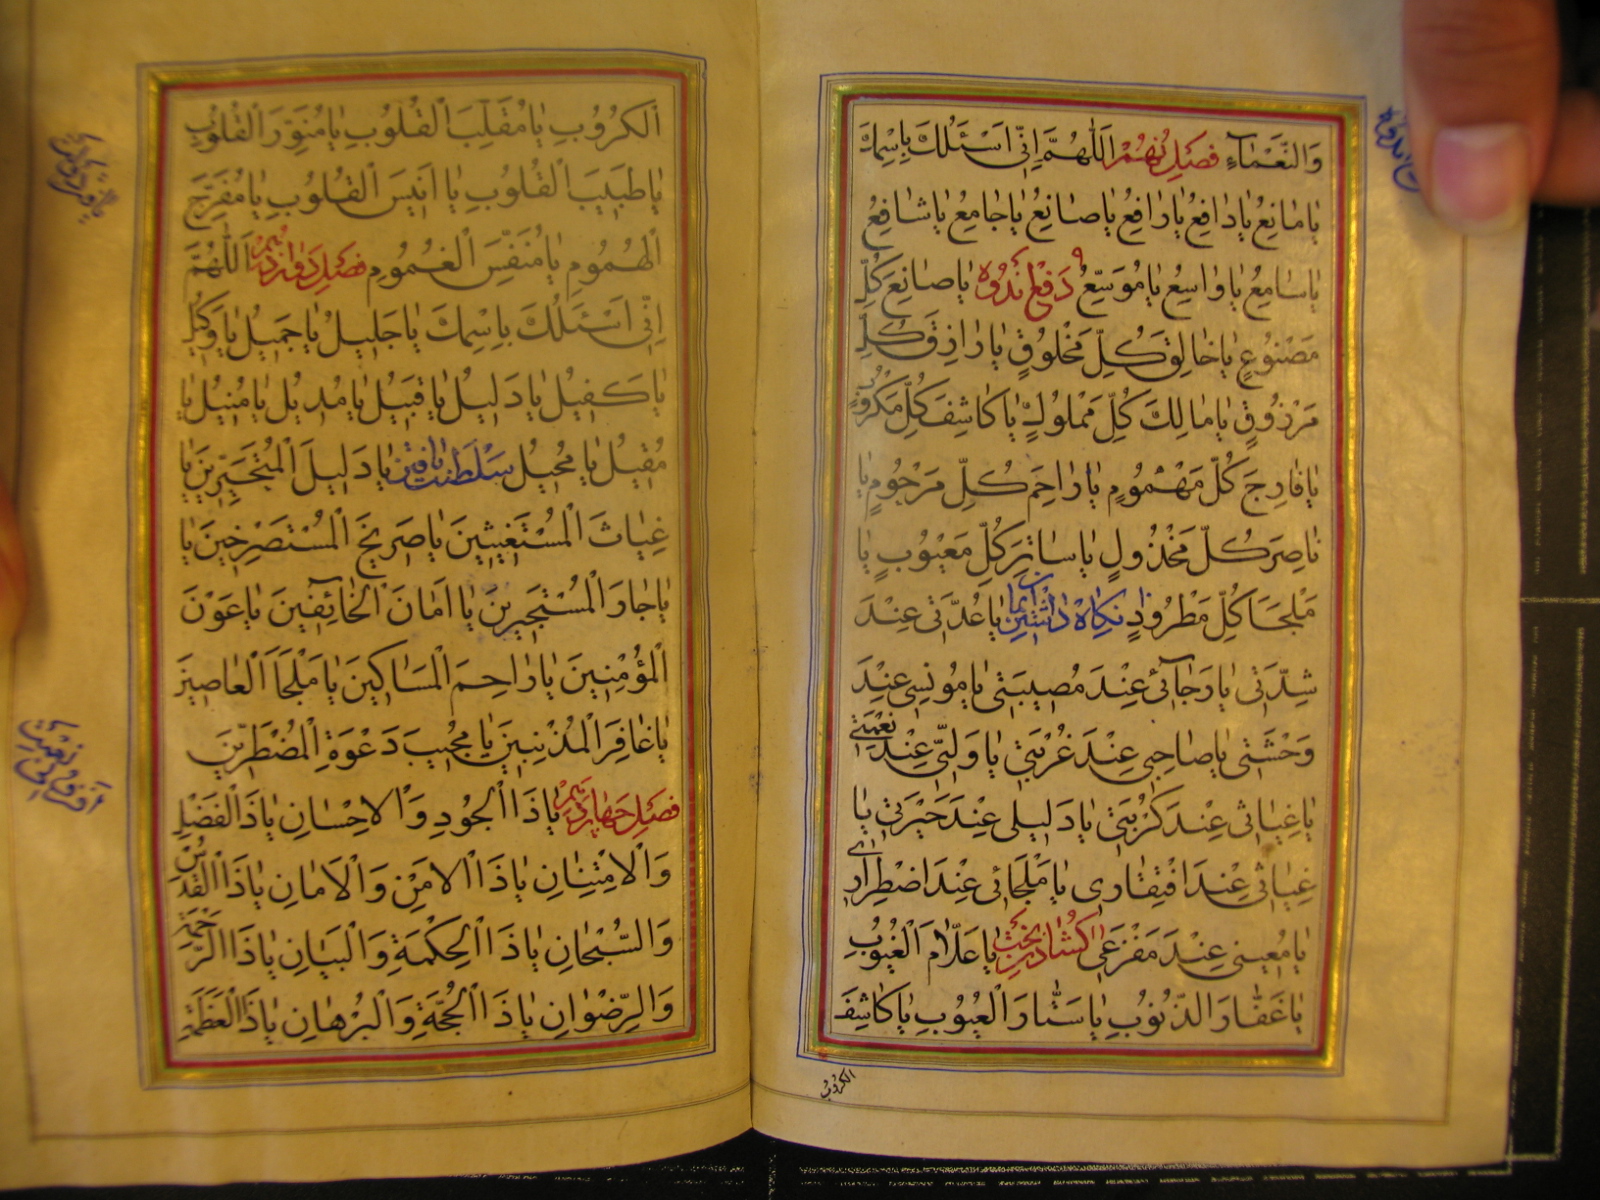 وَالنَّعْمَاءِ فصل نهم اَللّٰهُمَّ اِنِّي اَسْئَلُكَ بِاسْمِكَ
يَا مَانِعُ يَا دَافِعُ يَا رَافِعُ يَا صَانِعُ يَا جَامِعُ يَا شَافِعُ
يَا سَامِعُ يَا وَاسِعُ يَا مُوَسِّعُ دفع اندوه يَا صَانِعَ كُلِّ
مَصْنُوعٍ يَا خَالِقَ كُلِّ مَخْلُوقٍ يَا رَازِقَ كُلِّ
مَرْزُوقٍ يَا مَالِكَ كُلِّ مَمْلُوكٍ يَا كَاشِفَ كُلِّ مَكْرُوبٍ
يَا فَارِجَ كُلِّ مَهْمُومٍ يَا رَاحِمَ كُلِّ مَرْحُومٍ يَا
نَاصِرَ كُلِّ مَخْذُولٍ يَا سَاتِرَ كُلِّ مَعْيُوبٍ يَا
مَلْجَأَ كُلِّ مَطْرُودٍ نگاه داشتن يَا عُدَّتِي عِنْدَ
شِدَّتِي يَا رَجَائِي عِنْدَ مُصِيبَتِي يَا مُونِسِي عِنْدَ
وَحْشَتِي يَا صَاحِبِي عِنْدَ غُرْبَتِي يَا وَلِيِّي عِنْدَ نِعْمَتِي
يَا غِيَاثِي عِنْدَ كُرْبَتِي يَا دَلِيلِي عِنْدَ حَيْرَتِي يَا
غِيَاثِي عِنْدَ افْتِقَارِي يَا مَلْجَائِي عِنْدَ اضْطِرَارِي
يَا مُعِينِي عِنْدَ مَفْزَعِي يَا عَلَّامَ الْغُيُوبِ
يَا غَفَّارَ الذُّنُوبِ يَا سَتَّارَ الْعُيُوبِ يَا كَاشِفَ
الكروب
اَلْكُرُوبِ يَا مُقَلِّبَ الْقُلُوبِ يَا مُنَوِّرَ الْقُلُوبِ
يَا طَبِيبَ الْقُلُوبِ يَا اَنِيسَ الْقُلُوبِ يَا مُفَرِّجَ
الْهُمُومِ يَا مُنَفِّسَ الْغُمُومِ فصل دوازدهم اَللّٰهُمَّ
اِنِّي اَسْئَلُكَ بِاسْمِكَ يَا جَلِيلُ يَا جَمِيلُ يَا وَكِيلُ
يَا كَفِيلُ يَا دَلِيلُ يَا قَبِيلُ يَا مُدِيلُ يَا مُنِيلُ يَا
مُقِيلُ يَا مُحِيلُ سلطنت يافتن يَا دَلِيلَ الْمُتَحَيِّرِينَ يَا
غِيَاثَ الْمُسْتَغِيثِينَ يَا صَرِيخَ الْمُسْتَصْرِخِينَ يَا
جَارَ الْمُسْتَجِيرِينَ يَا اَمَانَ الْخَائِفِينَ يَا عَوْنَ
الْمُؤْمِنِينَ يَا رَاحِمَ الْمَسَاكِينَ يَا مَلْجَأَ الْعَاصِينَ
يَا غَافِرَ الْمُذْنِبِينَ يَا مُجِيبَ دَعْوَةِ الْمُضْطَرِّينَ
فصل چهاردهم يَا ذَا الْجُودِ وَالْاِحْسَانِ يَا ذَا الْفَضْلِ
وَالْاِمْتِنَانِ يَا ذَا الْاَمْنِ وَالْاَمَانِ يَا ذَا الْقُدْسِ
وَالسُّبْحَانِ يَا ذَا الْحِكْمَةِ وَالْبَيَانِ يَا ذَا الرَّحْمَةِ
وَالرِّضْوَانِ يَا ذَا الْحُجَّةِ وَالْبُرْهَانِ يَا ذَا الْعَظَمَةِ